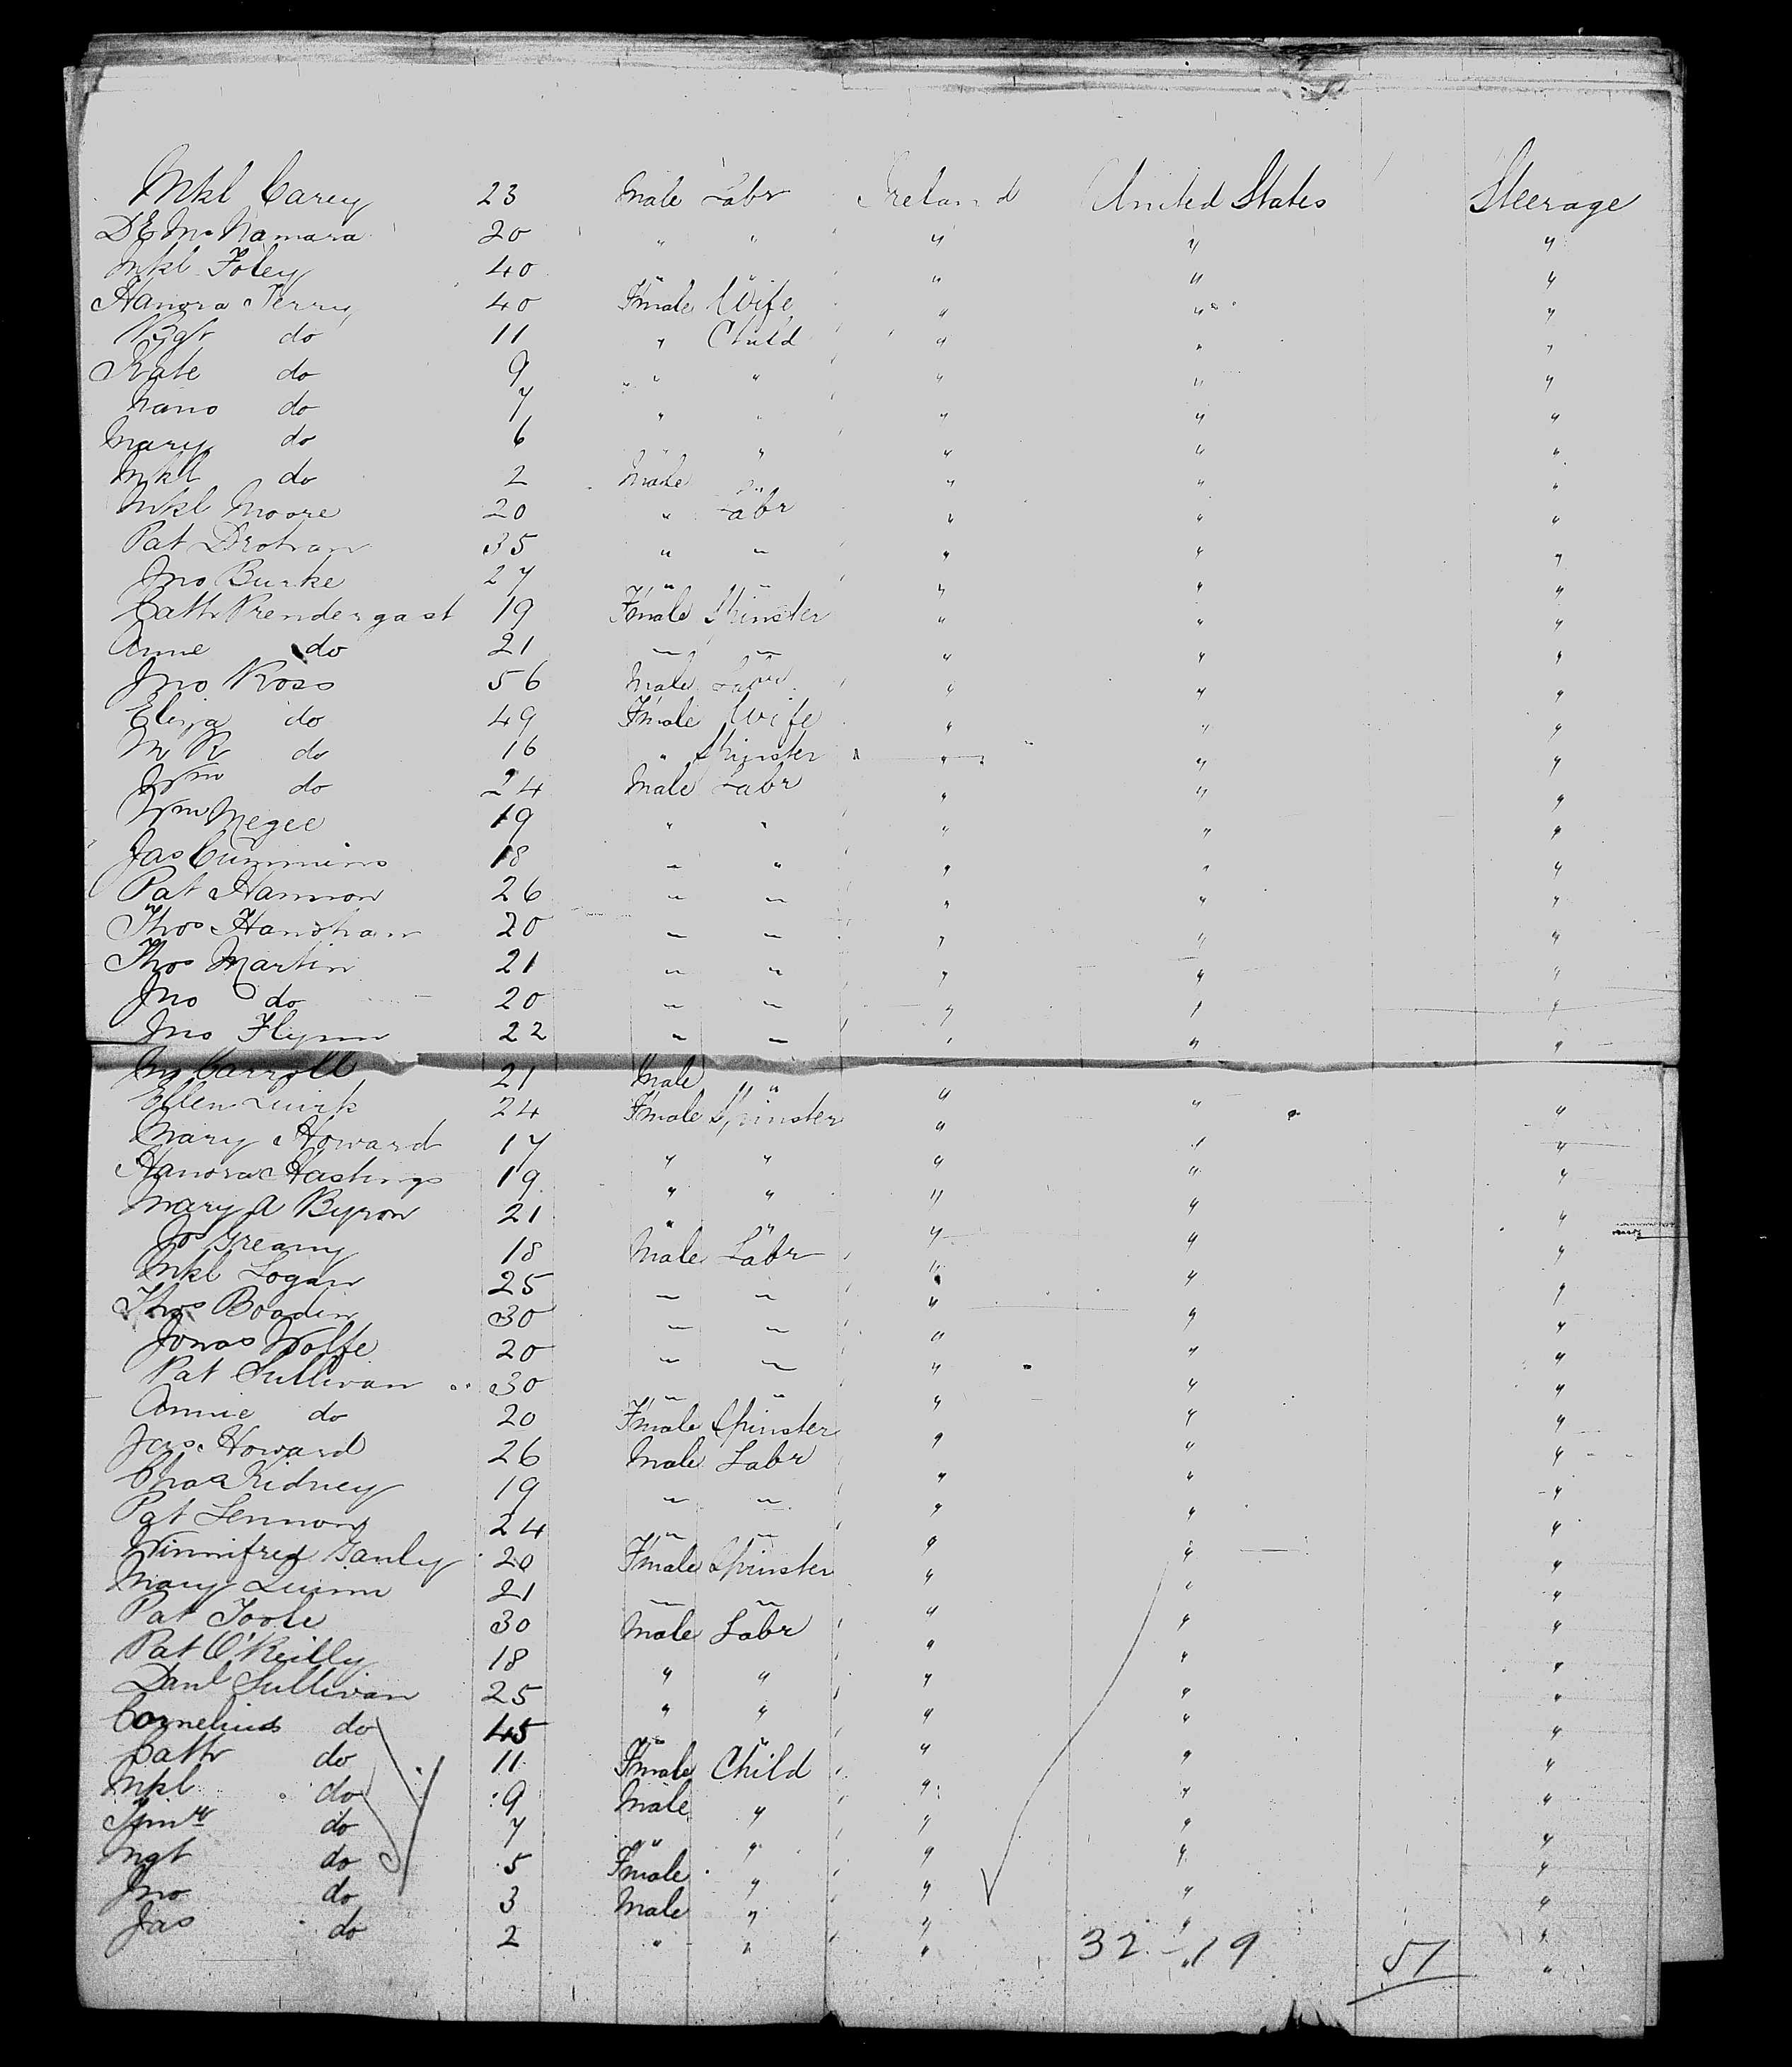 Mkl Carey 23 Male Labr Ireland United States Steerage
D E McNamara 20 " " " " "
Mkl Foley 40 " " " " "
Hanora Terry 40 Fmale Wife " " "
Mgt do 11 " Child " " "
Kate do 9 " " " " "
Nano do 7 " " " " "
Mary do 6 " " " " "
Mkl do 2 Male " " " "
Mkl Moore 20 " Labr " " "
Pat Drohan 35 " " " " "
Jno Burke 27 " " " " "
Cath Prendergast 19 Fmale Spinster " " "
Anne do 21 " " " " "
Jno Ross 56 Male Labr " " "
Eliza do 49 Fmale Wife " " "
M R do 16 " Spinster " " "
Wm do 24 Male Labr " " "
Wm Megee 19 " " " " "
Jas Cummins 18 " " " " "
Pat Hannon 26 " " " " "
Thos Hanohan 20 " " " " "
Thos Martin 21 " " " " "
Jno do 20 " " " " "
Jno Flynn 22 " " " " "
Jno Carroll 21 Male " " " "
Ellen Quirk 24 Fmale Spinster " " "
Mary Howard 17 " " " " "
Hanora Hastings 19 " " " " "
Mary A Byron 21 " " " " "
Jos Greany 18 Male Labr " " "
Mkl Logan 25 " " " " "
Thos Boadin 30 " " " " "
Jonas Wolfe 20 " " " " "
Pat Sullivan 30 " " " " "
Annie do 20 Fmale Spinster " " "
Jas Howard 26 Male Labr " " "
Chas Kidney 19 " " " " "
Pat Lennon 24 " " " " "
Winnifred Ganly 20 Fmale Spinster " " "
Mary Quinn 21 " " " " "
Pat Toole 30 Male Labr " " "
Pat O'Reilly 18 " " " " "
Danl Sullivan 25 " " " " "
Cornelius do 45 " " " " "
Cath do 11 Fmale Child " " "
Mkl do 9 Male " " " "
Timy do 7 " " " " "
Mgt do 5 Fmale " " " "
Jno do 3 Male " " " "
Jas do 2 " " " " "
32 - 19 51